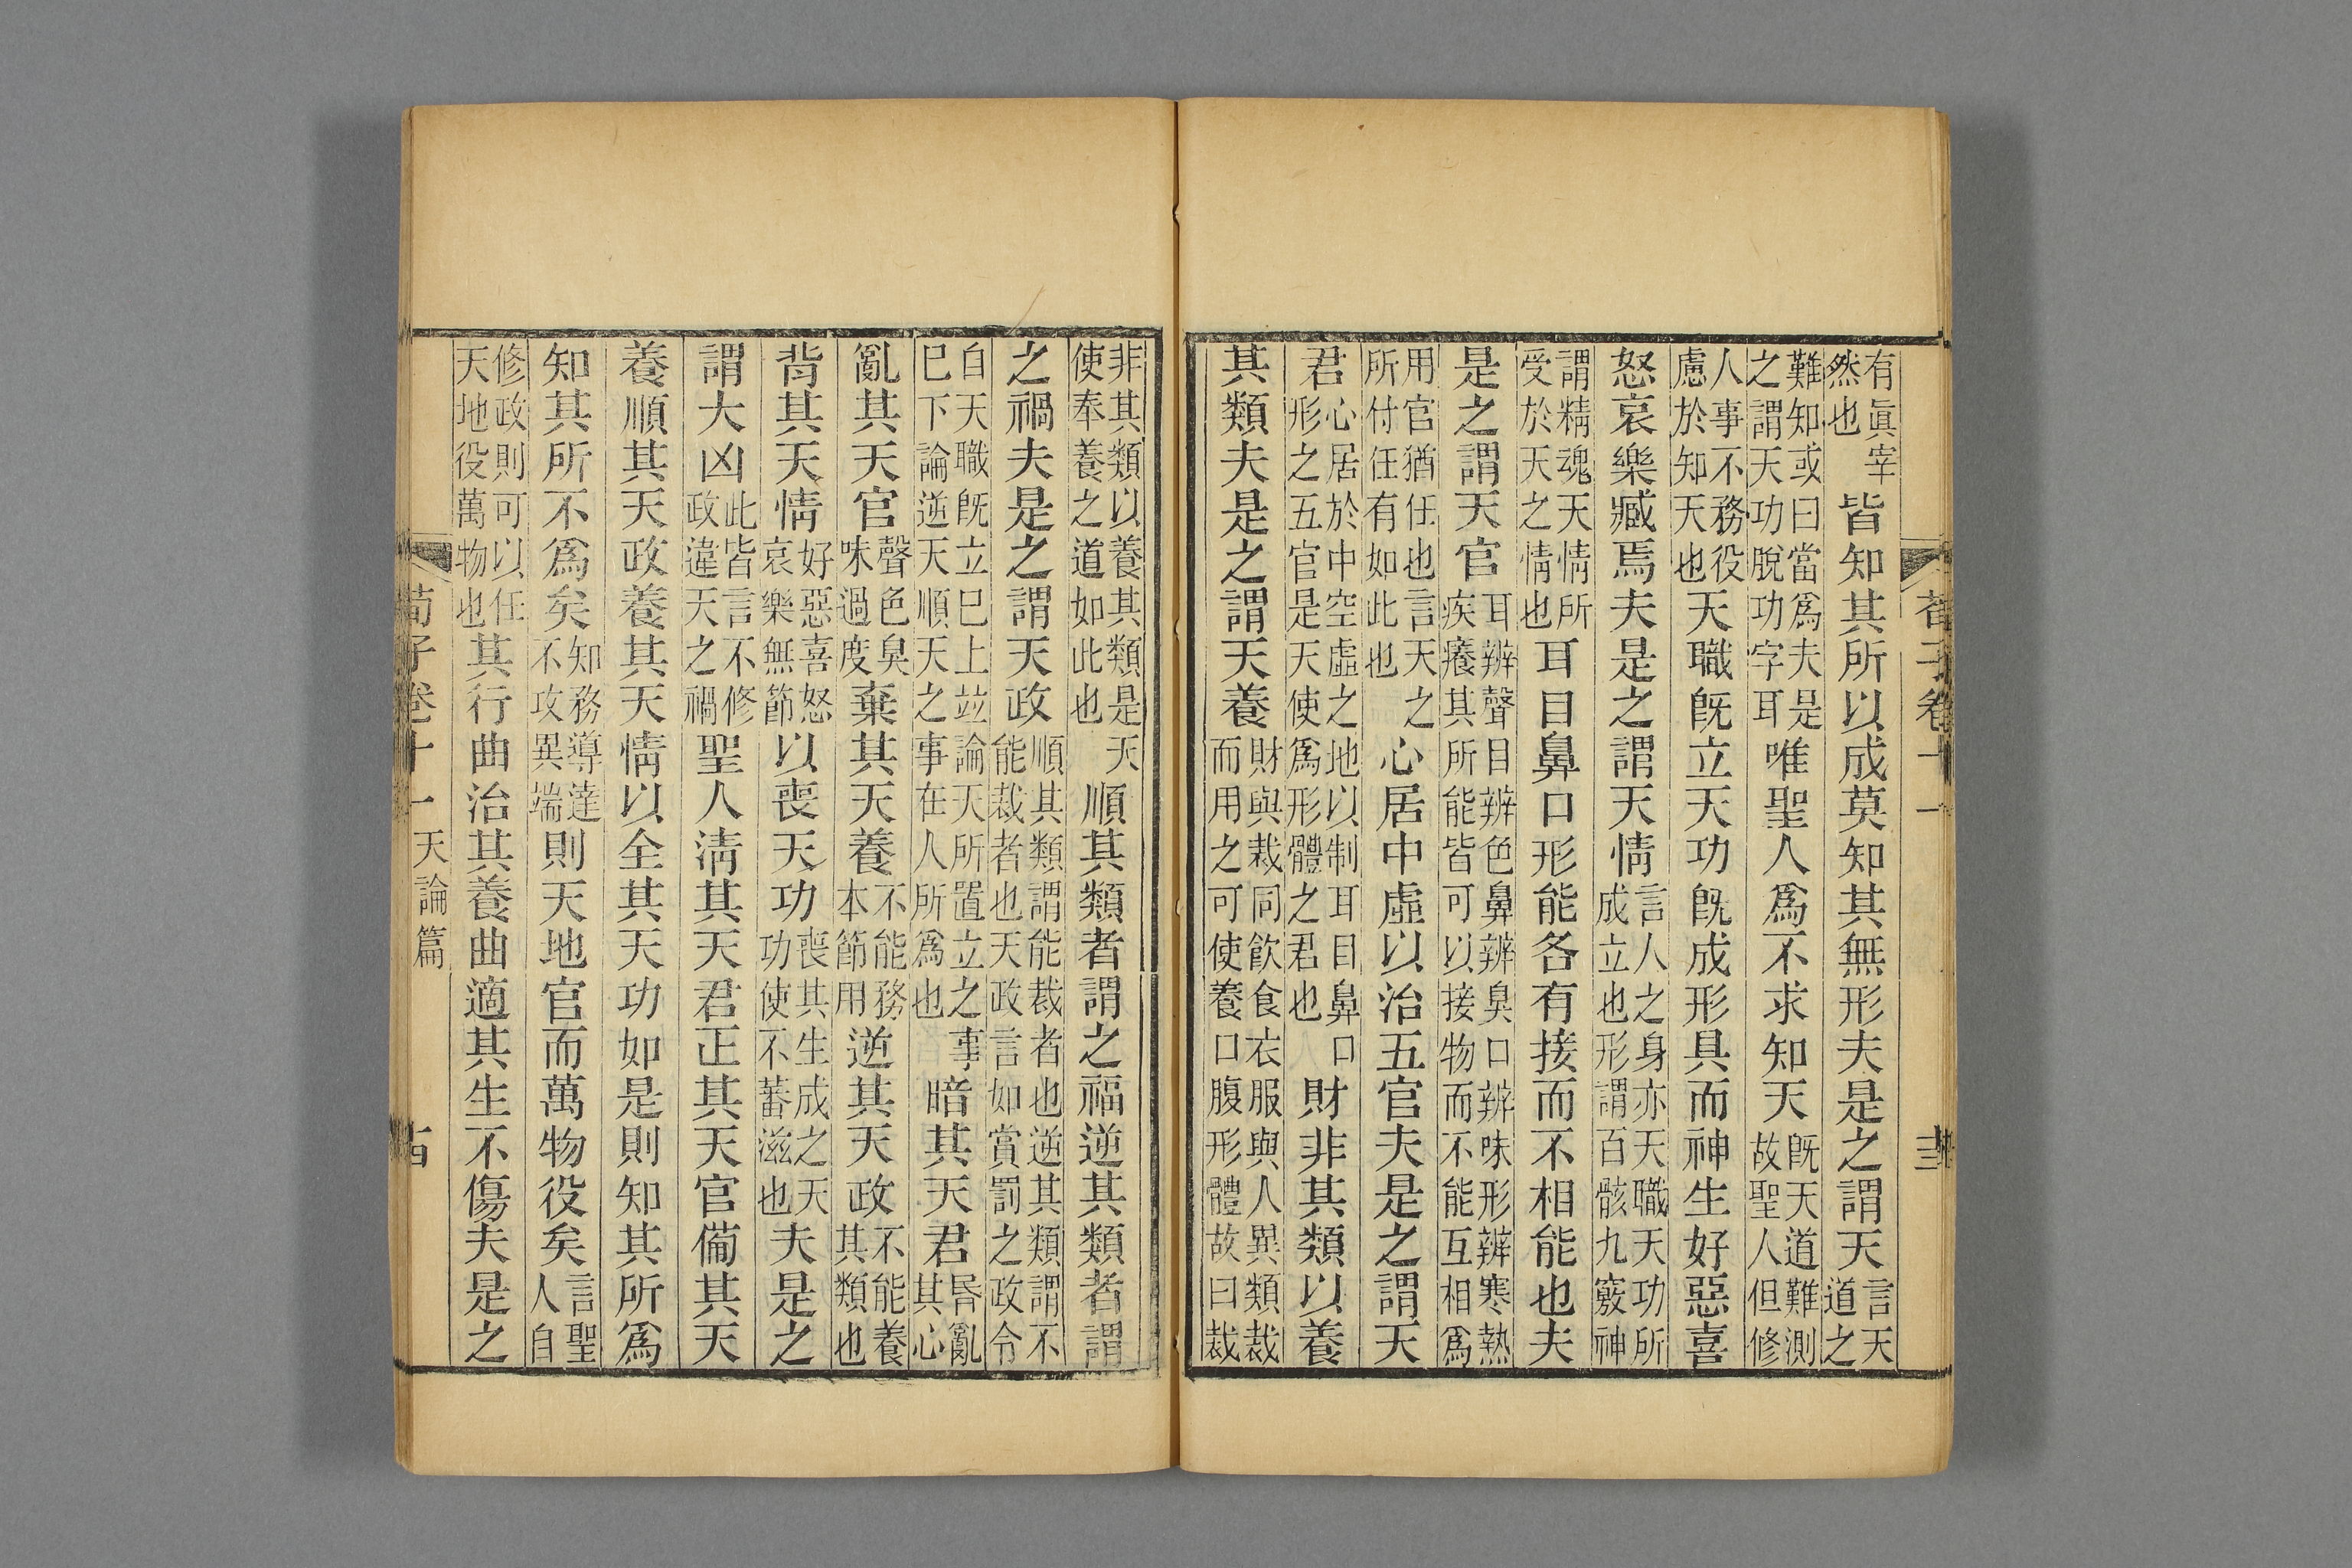 荀子卷十一 十三
有眞宰然也皆知其所以成莫知其無形夫是之謂天言天道之
難知或曰當爲夫是之謂天功脫功字耳唯聖人爲不求知天旣天道難測故聖人但修
人事不務役慮於知天也天職旣立天功旣成形具而神生好惡喜
怒哀樂臧焉夫是之謂天情言人之身亦天職天功所成立也形謂百骸九竅神
謂精魂天情所受於天之情也耳目鼻口形能各有接而不相能也夫
是之謂天官耳辨聲目辨色鼻辨臭口辨味形辨寒熱疾癢其所能皆可以接物而不能互相爲
用官猶任也言天之所付任有如此也心居中虛以治五官夫是之謂天
君心居於中空虛之地以制耳目鼻口形之五官是天使爲形體之君也財非其類以養
其類夫是之謂天養財與裁同飲食衣服與人異類裁而用之可使養口腹形體故曰裁
非其類以養其類是天使奉養之道如此也順其類者謂之福逆其類者謂
之禍夫是之謂天政順其類謂能裁者也逆其類謂不能裁者也天政言如賞罰之政令
自天職旣立已上竝論天所置立之事已下論逆天順天之事在人所爲也暗其天君昬亂其心
亂其天官聲色臭味過度棄其天養不能務本節用逆其天政不能養其類也
背其天情好惡喜怒哀樂無節以喪天功喪其生成之天功使不蕃滋也夫是之
謂大凶此皆言不修政違天之禍聖人淸其天君正其天官備其天
養順其天政養其天情以全其天功如是則知其所爲
知其所不爲矣知務導達不攻異端則天地官而萬物役矣言聖人自
修政則可以任天地役萬物也其行曲治其養曲適其生不傷夫是之
荀子卷十一 天論篇 十四